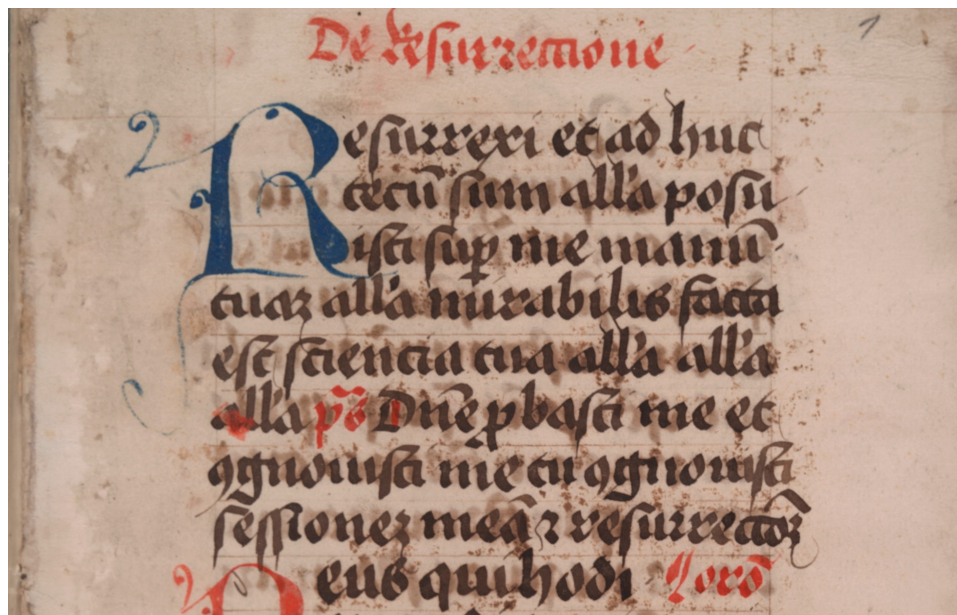 De Resurrectione
1
Resurrexi et ad huc
tecū sum all'a posu
isti suꝑ me manū
tuaꝫ all'a mirabilis facta
est sciencia tua all'a all'a
all'a p̄s Dn̄e ꝓbasti me et
ꝯgnouisti me tu ꝯgnouisti
sessioneꝫ meā ⁊ resurrectōꝫ
Deus qui hodi